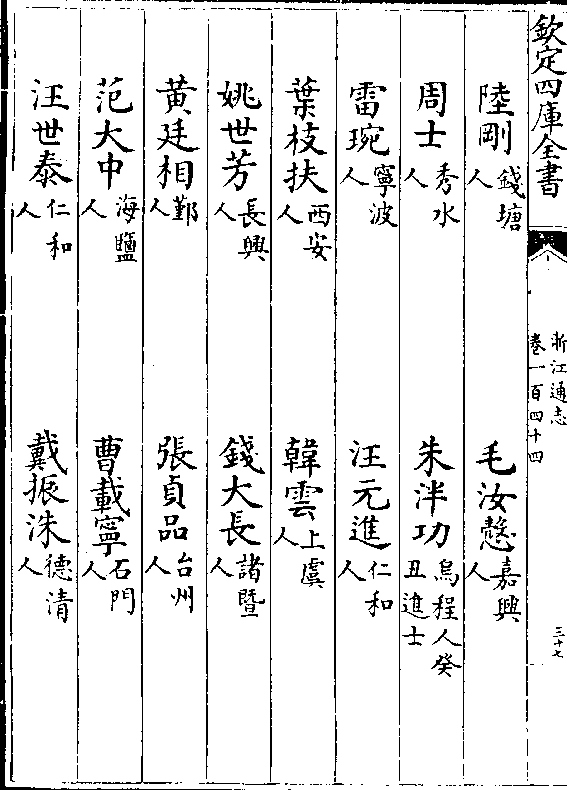 欽定四庫全書
浙江通志
卷一百四十四
三十七
陸剛錢塘人
毛汝慤嘉興人
周士秀水人
朱泮功烏程人癸丑進士
雷琬寧波人
汪元進仁和人
葉枝扶西安人
韓雲上虞人
姚世芳長興人
錢大長諸暨人
黃廷相鄞人
張貞品台州人
范大中海鹽人
曹載寧石門人
汪世泰仁和人
戴振洙德清人